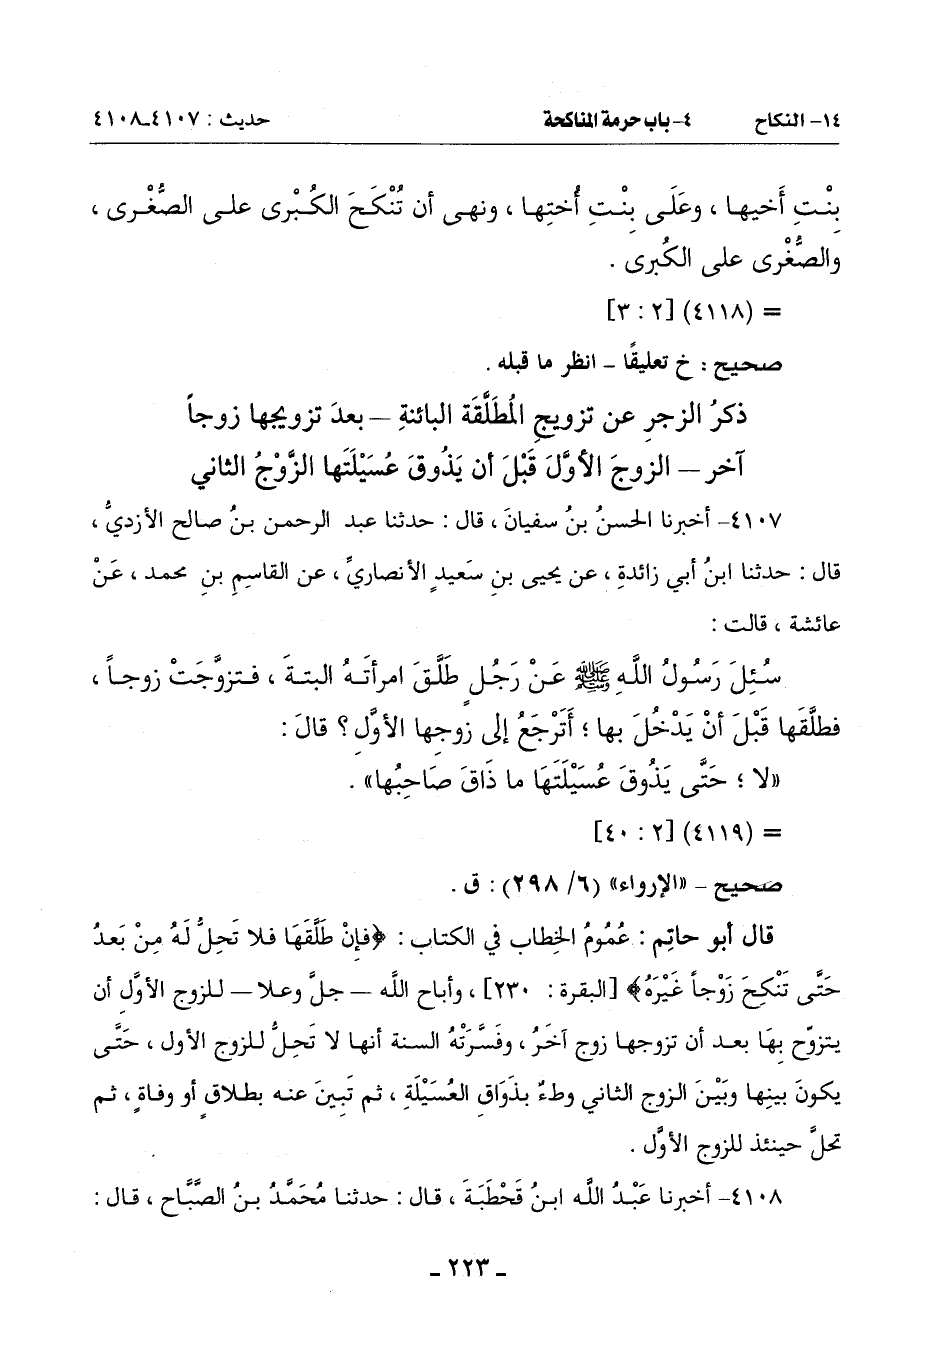 ١٤- النكاح ٤- باب حرمة المناكحة حديث : ٤١٠٧-٤١٠٨
بِنْتِ أَخيها ، وعَلَى بِنْتِ أُختِها ، ونهى أن تُنْكَحَ الكُبْرى على الصُّغْرى ،
والصُّغْرى على الكُبرى .
= (٤١١٨) [٢ : ٣]
صحيح : خ تعليقًا - انظر ما قبله .
ذكرُ الزجرِ عن تزويجِ المُطَلَّقَة البائنةِ – بعدَ تزويجِها زوجاً
آخر – الزوجَ الأوَّلَ قَبْلَ أن يَذُوقَ عُسَيْلَتَها الزَّوْجُ الثاني
٤١٠٧- أخبرنا الحسنُ بنُ سفيانَ ، قال : حدثنا عبد الرحمن بنُ صالح الأزديُّ ،
قال : حدثنا ابنُ أبي زائدةِ ، عن يحيى بنِ سَعيدٍ الأنصاريِّ ، عن القاسمِ بنِ محمد ، عَنْ
عائشة ، قالت :
سُئِلَ رَسُولُ اللَّهِ ﷺ عَنْ رَجُلٍ طَلَّقَ امرأتَهُ البتةَ ، فتزوَّجَتْ زوجاً ،
فطلَّقَها قَبْلَ أنْ يَدْخُلَ بها ؛ أَتَرْجَعُ إلى زوجِها الأوَّلِ ؟ قالَ :
«لا ؛ حَتَّى يَذُوقَ عُسَيْلَتَهَا ما ذَاقَ صَاحِبُها» .
= (٤١١٩) [٢ : ٤٠]
صحيح - «الإرواء» (٦/ ٢٩٨) : ق .
قال أبو حاتِم : عُمُومُ الخِطابِ في الكتاب : ﴿فإنْ طَلَّقَهَا فلا تَحِلُّ لَهُ مِنْ بَعدُ
حَتَّى تَنْكِحَ زَوْجاً غَيْرَهُ﴾ [البقرة : ٢٣٠] ، وأباح اللَّه – جلَّ وعلا – للزوج الأوَّلِ أن
يتزوّج بِهَا بعد أن تزوجها زوج آخَرُ ، وفَسَّرَتْهُ السنة أنها لا تَحِلُّ للزوج الأول ، حَتَّى
يكونَ بينها وبَيْنَ الزوج الثاني وطءٌ بذَوَاقِ العُسَيْلَةِ ، ثم تَبِينَ عنه بطلاقٍ أو وفاةٍ ، ثم
تحلَّ حينئذ للزوج الأوَّلِ .
٤١٠٨- أخبرنا عَبْدُ اللَّه ابنُ قَحْطَبَةَ ، قال : حدثنا مُحَمَّدُ بنُ الصَّبَّاح ، قال :
- ٢٢٣ -